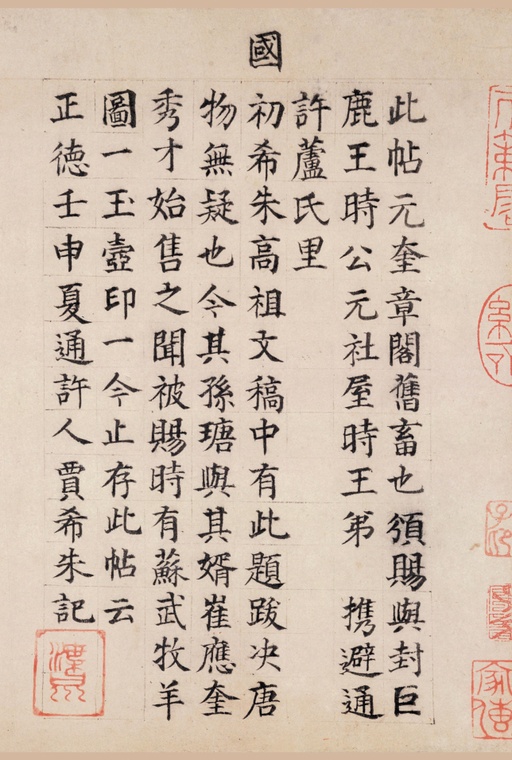 此帖元奎章閣舊畜也須賜與封巨
鹿王時公元社屋時王弟 携避通
許蘆氏里
國
初希朱高祖文稿中有此題跋决唐
物無疑也今其孫瑭與其婿崔應奎
秀才始售之聞被賜時有蘇武牧羊
圖一玉壺印一今止存此帖云
正德壬申夏通許人賈希朱記